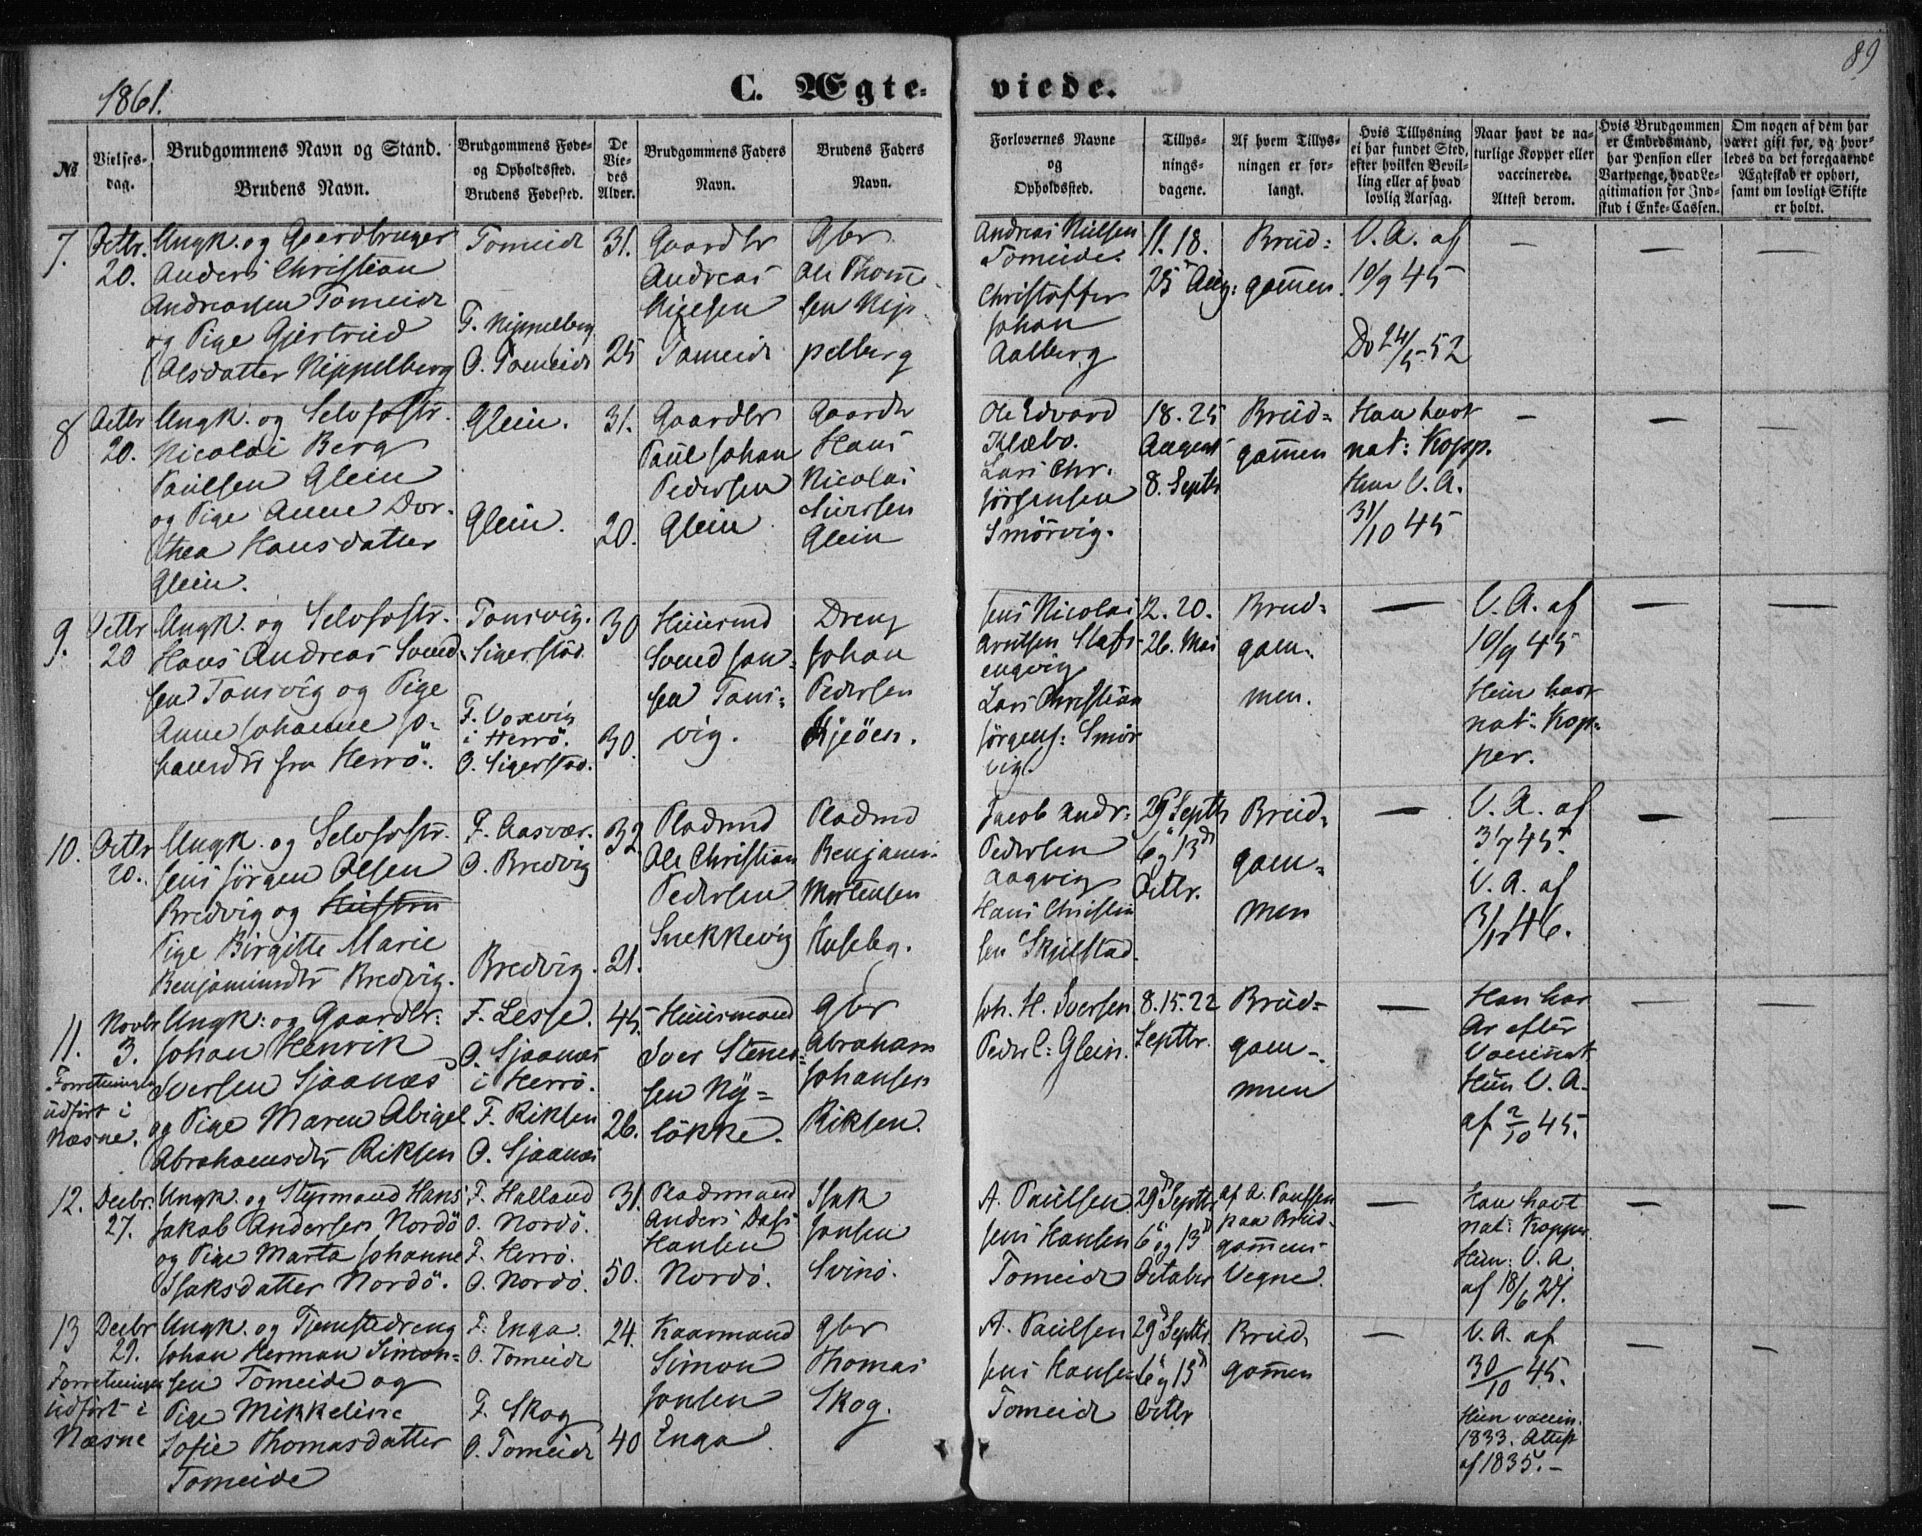 89
1861.
C. Ægteviede.
№
Vielsesdag.
Brudgommens Navn og Stand.
Brudens Navn.
Brudgommens Føde-
og Opholdssted.
Brudens Fødested.
De
Vie-
des
Alder.
Brudgommens Faders
Navn.
Brudens Faders
Navn.
Forlovernes Navne
og
Opholdssted.
Tillys-
nings-
dagene.
Af hvem Tillys-
ningen er for-
langt.
Hvis Tillysning
ei har fundet Sted,
efter hvilken Bevil-
ling eller af hvad
lovlig Aarsag.
Naar havt de na-
turlige Kopper eller
vaccinerede.
Attest derom.
Hvis Brudgommen
er Embedsmand,
har Pension eller
Vartpenge, hvad Le-
gitimation for Ind-
skud i Enke-Cassen.
Om nogen af dem har
været gift før, og hvor-
ledes da det foregaaende
Ægteskab er ophørt,
samt om lovligt Skifte
er holdt.
7.
Octbr.
20.
Ungk. og Gaardbruger
Anders Christian
Andreassen Tomeide
og Pige Gjertrud
Olsdatter Nippelberg
Tomeide
F. Nippelberg
O. Tomeide
31.
25
Gaardbr
Andreas
Nielsen
Tomeide
Gbr
Ole Thom-
sen Nip-
pelberg
Andreas Nielsen
Tomeide.
Christoffer
Johan
Aalberg
11. 18.
25 Aug:
Brud-
gommen.
V. A. af
10/9 45
Do 24/5 52
—
—
—
8
Octbr
20.
Ungk. og Selvfostr.
Nicolai Berg
Paulsen Glein
og Pige Anne Dor-
thea Hansdatter
Glein.
Glein.
Glein.
31.
20.
Gaardbr
Paul Johan
Pedersen
Glein
Gaardbr
Hans
Nicolai
Iversen
Glein
Ole Edvard
Klæbo.
Lars Chr.
Jörgensen
Smörvig.
18. 25
August
8. Septbr
Brud-
gommen
Han havt
nat: Kopp.
Hun V. A.
31/10 45
—
—
—
9.
Octbr
20
Ungk. og Selvfostr.
Hans Andreas Svend-
sen Tonsvig og Pige
Anne Johanne Jo-
hansdtr fra Herrö.
Tonsvig.
Sigerstad.
F. Voxvig
i Herrö.
O. Sigerstad.
30
30.
Huusmd
Svend Jon-
sen Tons-
vig.
Dreng
Johan
Pedersen
Kjeöen.
Jens Nicolai
Arntsen
Lars Christian
Jörgens: Smör
vig.
12. 20.
26. Mai
Brud-
gom-
men.
—
V. A. af
10/9 45
Hun havt
nat. Kop-
per.
—
—
10.
Octbr
20.
Ungk. og Selvfostr.
Jens Jörgen Olsen
Bredvig og
Pige Birgitte Marie
Benjaminsdtr Bredvig.
F. Aasvær.
O. Bredvig
Bredvig.
32.
21.
Pladsmd
Ole Christian
Pedersen
Snekkevig
Pladsmd
Benjamin
Mortensen
Huseby.
Jacob Andr:
Pedersen
Aagvig
Hans Christen
sen Skjelstad.
29 Septbr
6 og 13d
Octbr.
Brud-
gom-
men
—
V. A. af
3/7 45.
V. A. af
3/12 46.
—
—
11.
Novbr
3.
Forretningen
udfört i
Næsne.
Ungk: og Gaardbr:
Johan Henrik
Iversen Sjaanæs
og Pige Maren Abigel
Abrahamsdtr Riksen
F. Lesse.
O. Sjaanæs
i Herrö.
F. Riksen
O. Sjaanæs
45.
26.
Huusmand
Iver Stenes-
sen Ny-
lökke.
Gbr
Abraham
Johansen
Riksen.
Joh. H. Iversen.
Peder C: Glein.
8. 15. 22
Septbr.
Brud-
gom-
men
—
Han har
Ar efter
Vaccinat
Hun V. A.
af 2/10 45.
—
—
12.
Decbr.
27.
Ungk. og Styrmand Hans
Jakob Andersen Nordö
og Pige Marta Johanne
Isaksdatter Nordö.
F. Halland
O. Nordö.
F. Herrö.
O. Nordö.
31.
50.
Pladsmand
Anders Dass
Hansen
Nordö.
Isak
Jonsen
Svinö.
A. Paulsen
Jens Hansen
Tomeide
29d Septbr
6 og 13d
October
af A. Paulsen
paa Brud-
gommens
Vegne.
—
Han havt
nat: Kopper
Hun: V. A.
af 18/6 27.
—
—
13
Decbr
29.
Forretningen
udfört i
Næsne
Ungk. og Tjenstedreng
Johan Herman Simon-
sen Tomeide og
Pige Mikkeline
Sofie Thomasdatter
Tomeide
F. Enga.
O. Tomeide
F. Skog
O. Tomeide
24.
40
Kaarmand
Simon
Jonsen
Enga
Gbr
Thomas
Skog.
A. Paulsen
Jens Hansen
Tomeide
29d Septbr.
6 og 13d
Octbr
Brud
gommen
—
V. A. af
30/10 45.
Hun vaccin.
1833. Attest
af 1835.
—
—